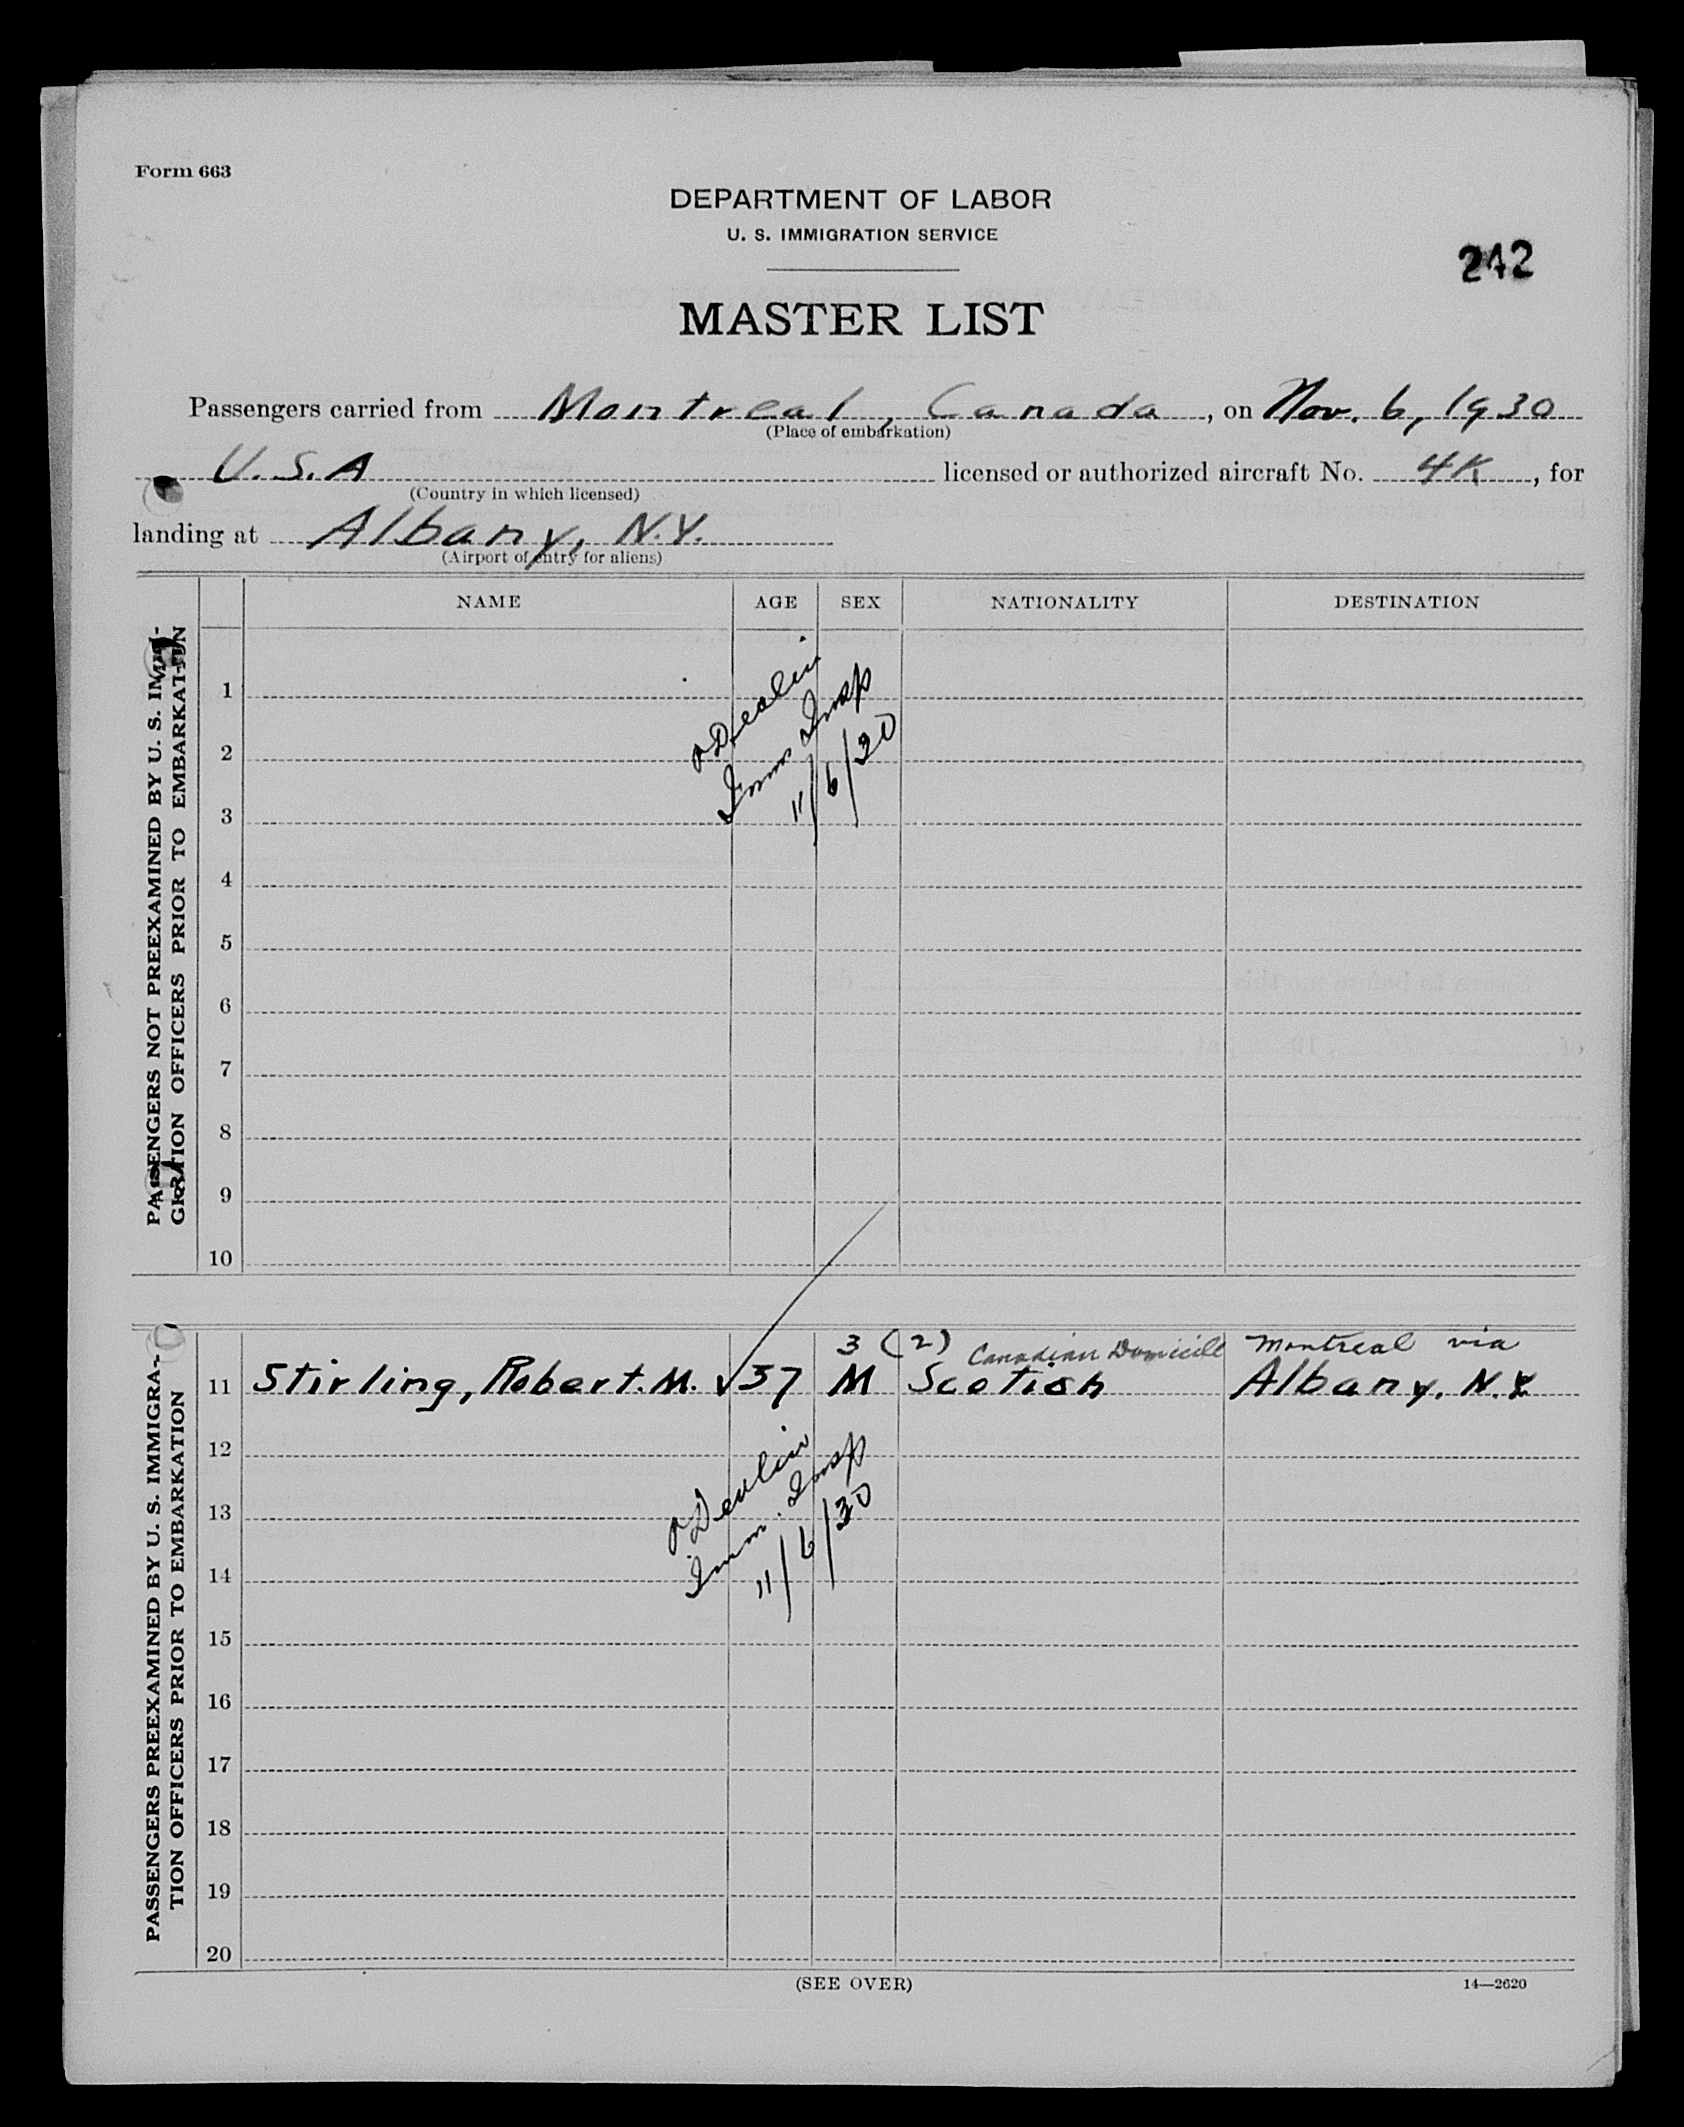 Form 663
DEPARTMENT OF LABOR
U. S. IMMIGRATION SERVICE
242
MASTER LIST
Passengers carried from Montreal, Canada, on Nov. 6, 1930
(Place of embarkation)
U.S.A licensed or authorized aircraft No. 4K, for
(Country in which licensed)
landing at Albany, N.Y.
(Airport of entry for aliens)
NAME AGE SEX NATIONALITY DESTINATION
PASSENGERS NOT PREEXAMINED BY U. S. IMMI-
GRATION OFFICERS PRIOR TO EMBARKATION
1
2
3
4
5
6
7
8
9
10
Devlin
Imm Insp
11/6/30
PASSENGERS PREEXAMINED BY U. S. IMMIGRA-
TION OFFICERS PRIOR TO EMBARKATION
3 (2) Canadian Domicile Montreal via
11 Stirling, Robert. M. ✓ 37 M Scotish Albany, N.Y.
12
13
14
15
16
17
18
19
20
Devlin
Imm. Insp
11/6/30
(SEE OVER)
14—2620